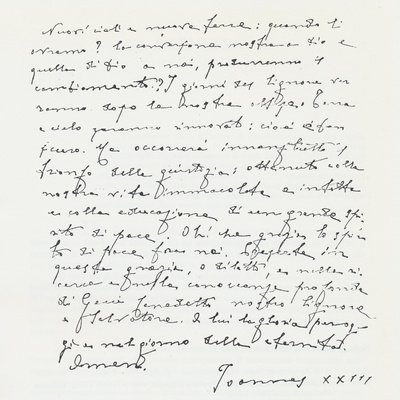 Nuovi cieli e nuova terra: quando li
avremo? la conversione nostra a Dio e
quella di Dio a noi, produrranno il
cambiamento. I giorni del Signore ver
ranno dopo la nostra attesa. Terra
e cielo saranno rinnovati: cioè
Ma occorrerà innanzitutto il
trionfo della giustizia: ottenuto colla
nostra vita immacolata e
e colla educazione di un grande spi-
rito di pace. Oh! che grazia lo spiri-
to di pace fra noi. in
questa grazia, o diletti, e nella
e nella conoscenza profonda
di Gesù benedetto nostro Signore
e Salvatore. A lui la gloria per og-
gi e nel giorno della eternità.
Amen.
Joannes XXIII